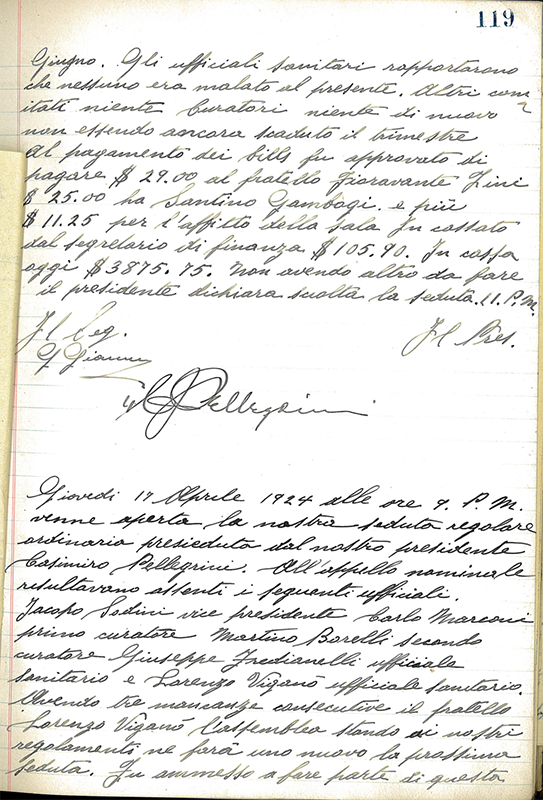 119
Giugno. Gli ufficiali sanitari rapportarono
che nessuno era malato al presente. Altri com
itati niente Curatori niente di nuovo
non essendo ancora scaduto il trimestre
Al pagamento dei bills fu approvato di
pagare $ 29.00 al fratello Fioravante Zini
$ 25.00 ha Santino Gambogi. e più
$ 11.25 per l'affitto della sala In cassato
dal segretario di finanza $ 105.90. In cassa
oggi $ 3875.75. Non avendo altro da fare
il presidente dichiara sciolta la seduta. 11. P.M.
Il Seg. Il Pres.
G Giann
Pellegrini
Giovedi 17 Aprile 1924 alle ore 9. P. M.
venne aperta la nostra seduta regolare
ordinaria presieduta dal nostro presidente
Casimiro Pellegrini. All'appello nominale
risultavano assenti i seguenti ufficiali.
Jacopo Sodini vice presidente Carlo Marconi
primo curatore Martino Borelli secondo
curatore Giuseppe Inedianelli ufficiale
sanitario e Lorenzo Viganò ufficiale sanitario.
Avendo tre mancanze consecutive il fratello
Lorenzo Viganò l'assemblea stando ai nostri
regolamenti ne farà uno nuovo la prossima
seduta. Fu ammesso a fare parte di questa